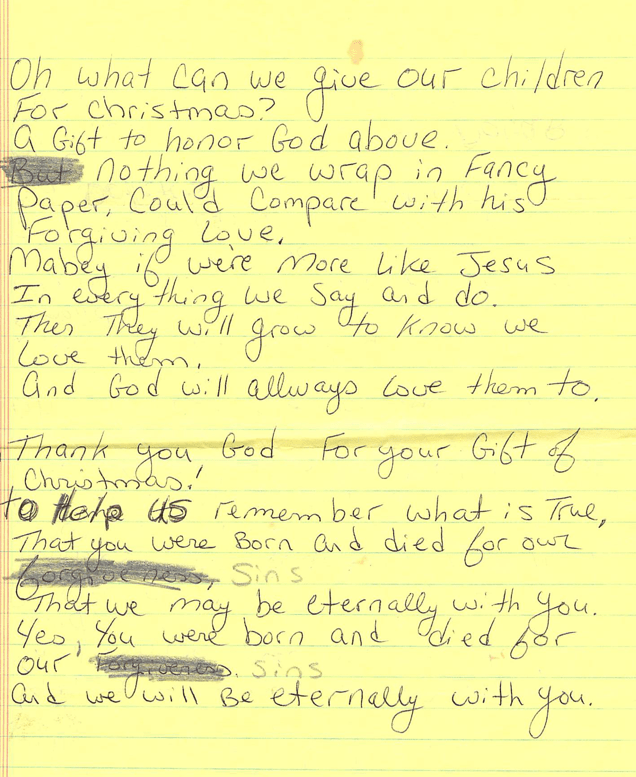 Oh what can we give our children
For christmas?
A Gift to honor God above.
But nothing we wrap in Fancy
Paper, Could Compare with his
Forgiving Love.
Mabey if we're More Like Jesus
In every thing we Say and do.
Then They will grow to know we
Love them.
And God will allways Love them to.
Thank you God For your Gift of
Christmas!
to Help us remember what is True,
That you were Born and died for our
forgiveness, Sins
That we may be eternally with you.
Yes, You were born and died for
our Forgiveness. Sins
And we will Be eternally with you.